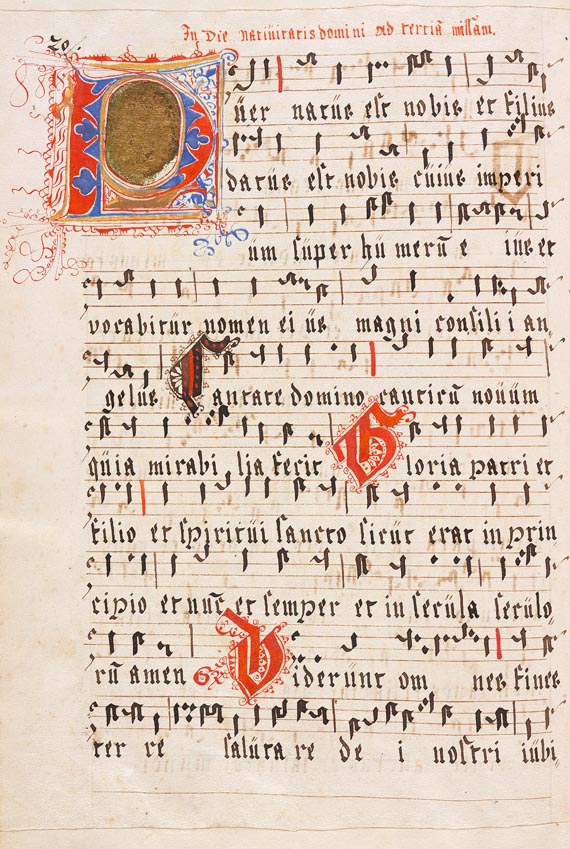 In die nativitatis domini ad terciā missam.
20.
Puer natus est nobis et filius
datus est nobis cuius imperi
um super humerū eius et
vocabitur nomen eius magni consilii an
gelus Cantate domino canticū novum
quia mirabilia fecit Gloria patri et
filio et spiritui sancto sicut erat in prin
cipio et nūc et semper et in secula seculo
rū amen Viderunt omnes fines
ter re salutare dei nostri iubi